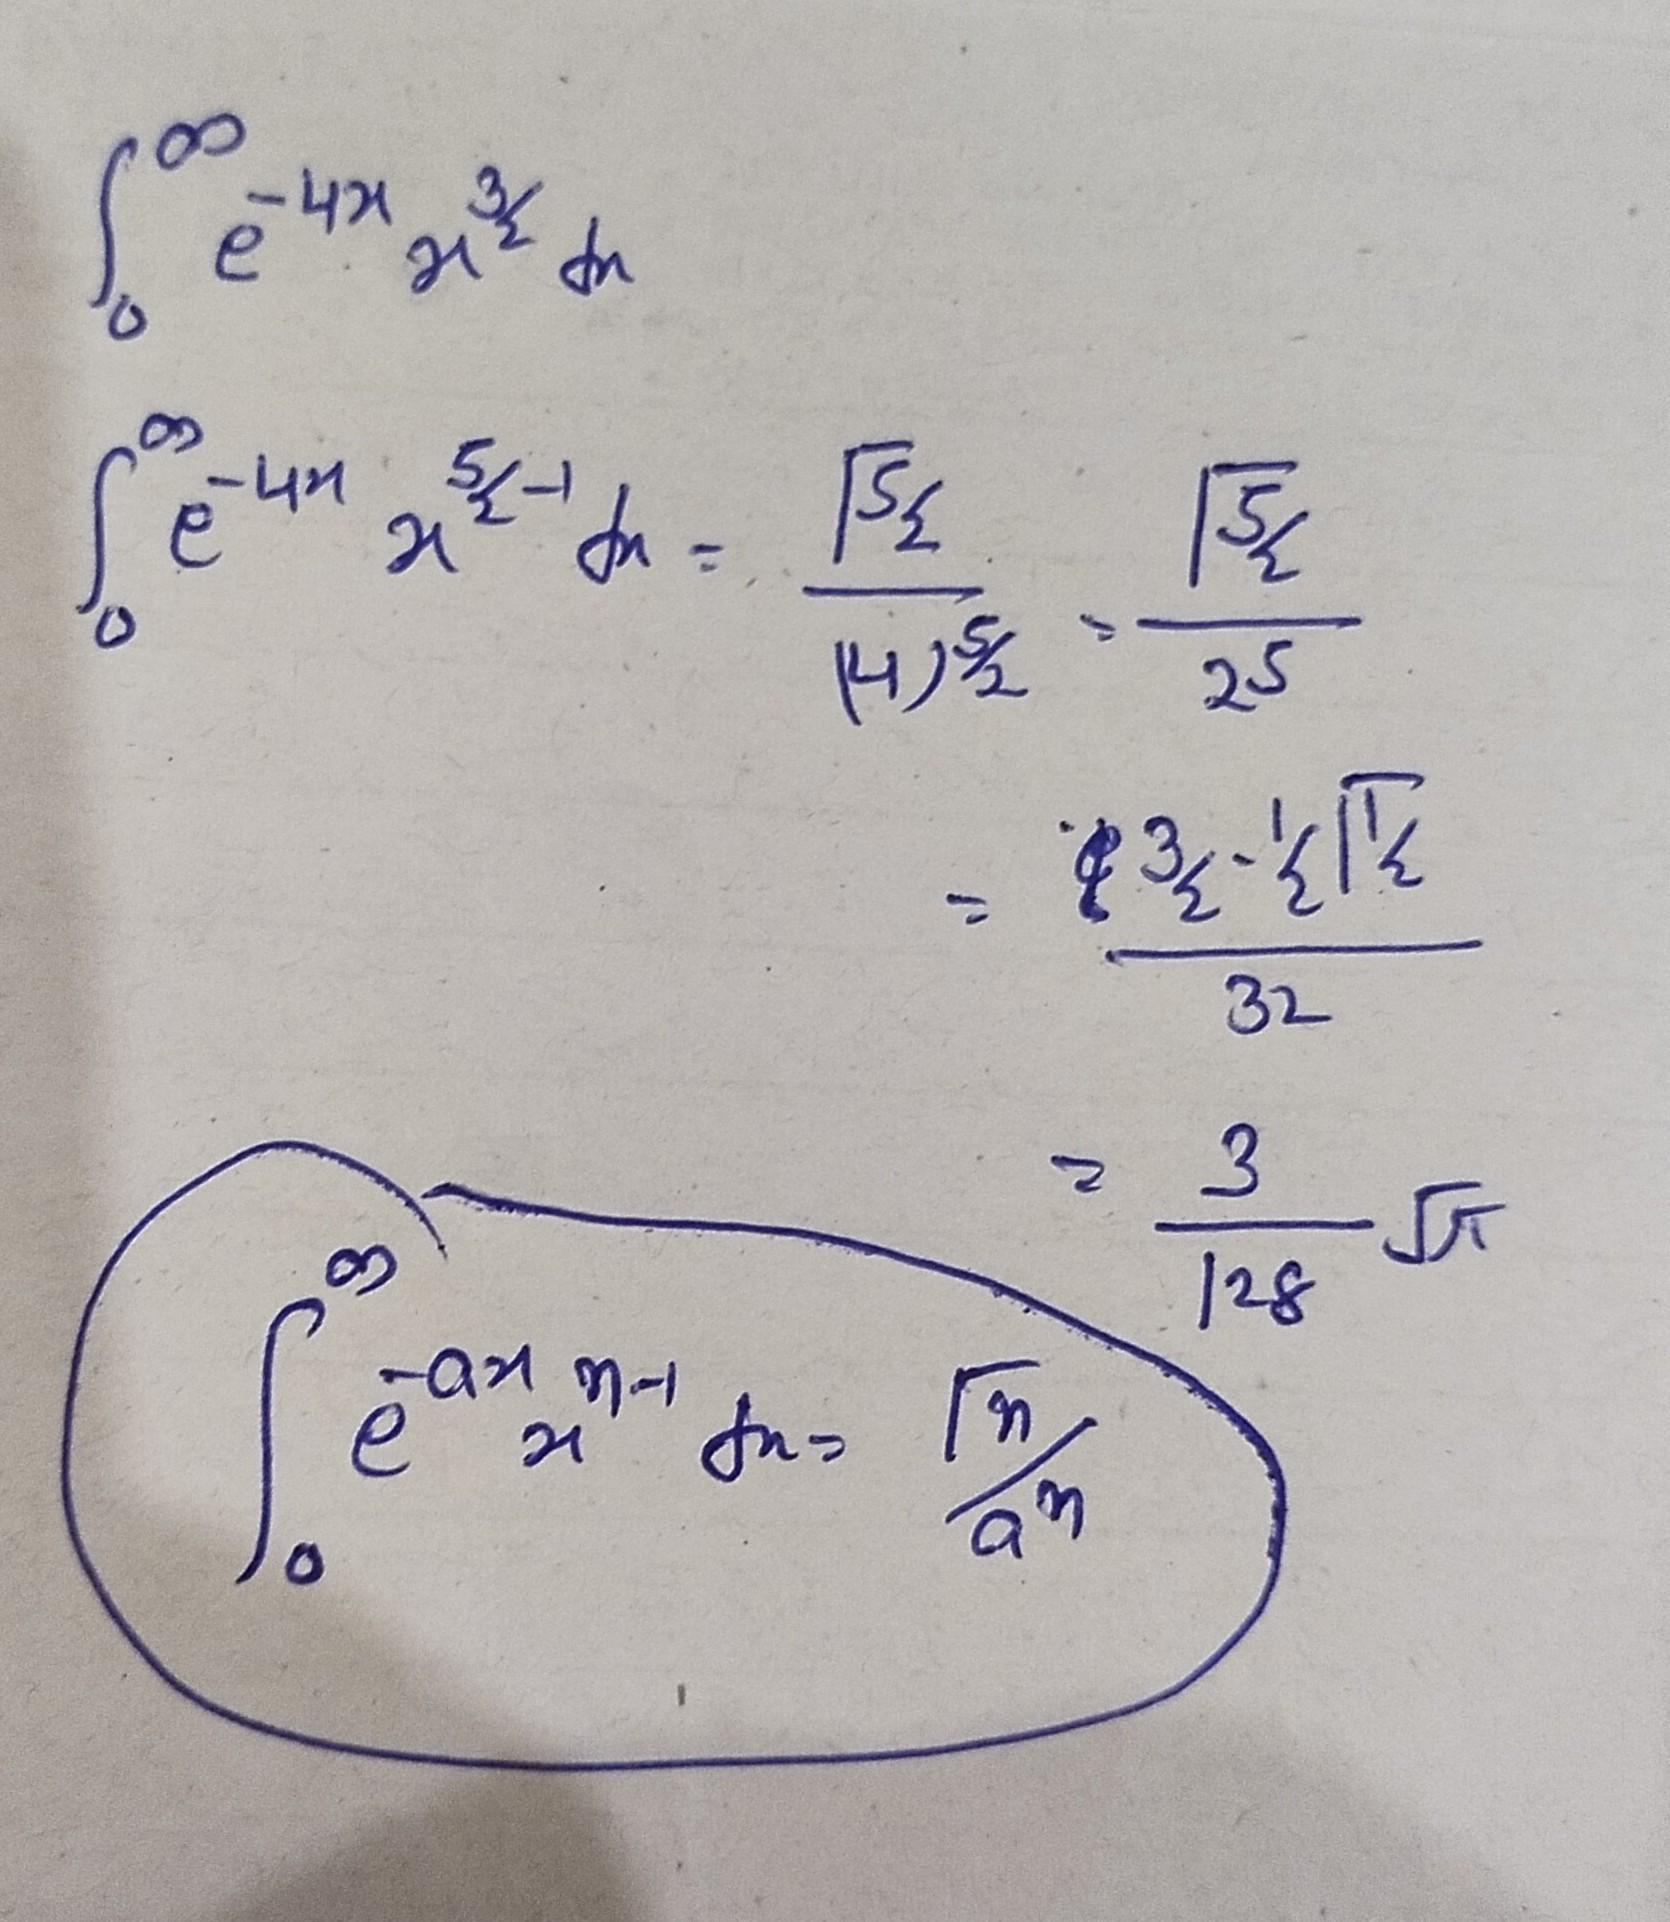 ∫₀^∞ e^{-4x} x^{3/2} dx
∫₀^∞ e^{-4x} x^{5/2-1} dx = Γ5/2 / (4)^{5/2} = Γ5/2 / 2^5
= 3/2 · 1/2 Γ1/2 / 32
= 3/128 √π
∫₀^∞ e^{-ax} x^{n-1} dx = Γn / a^n